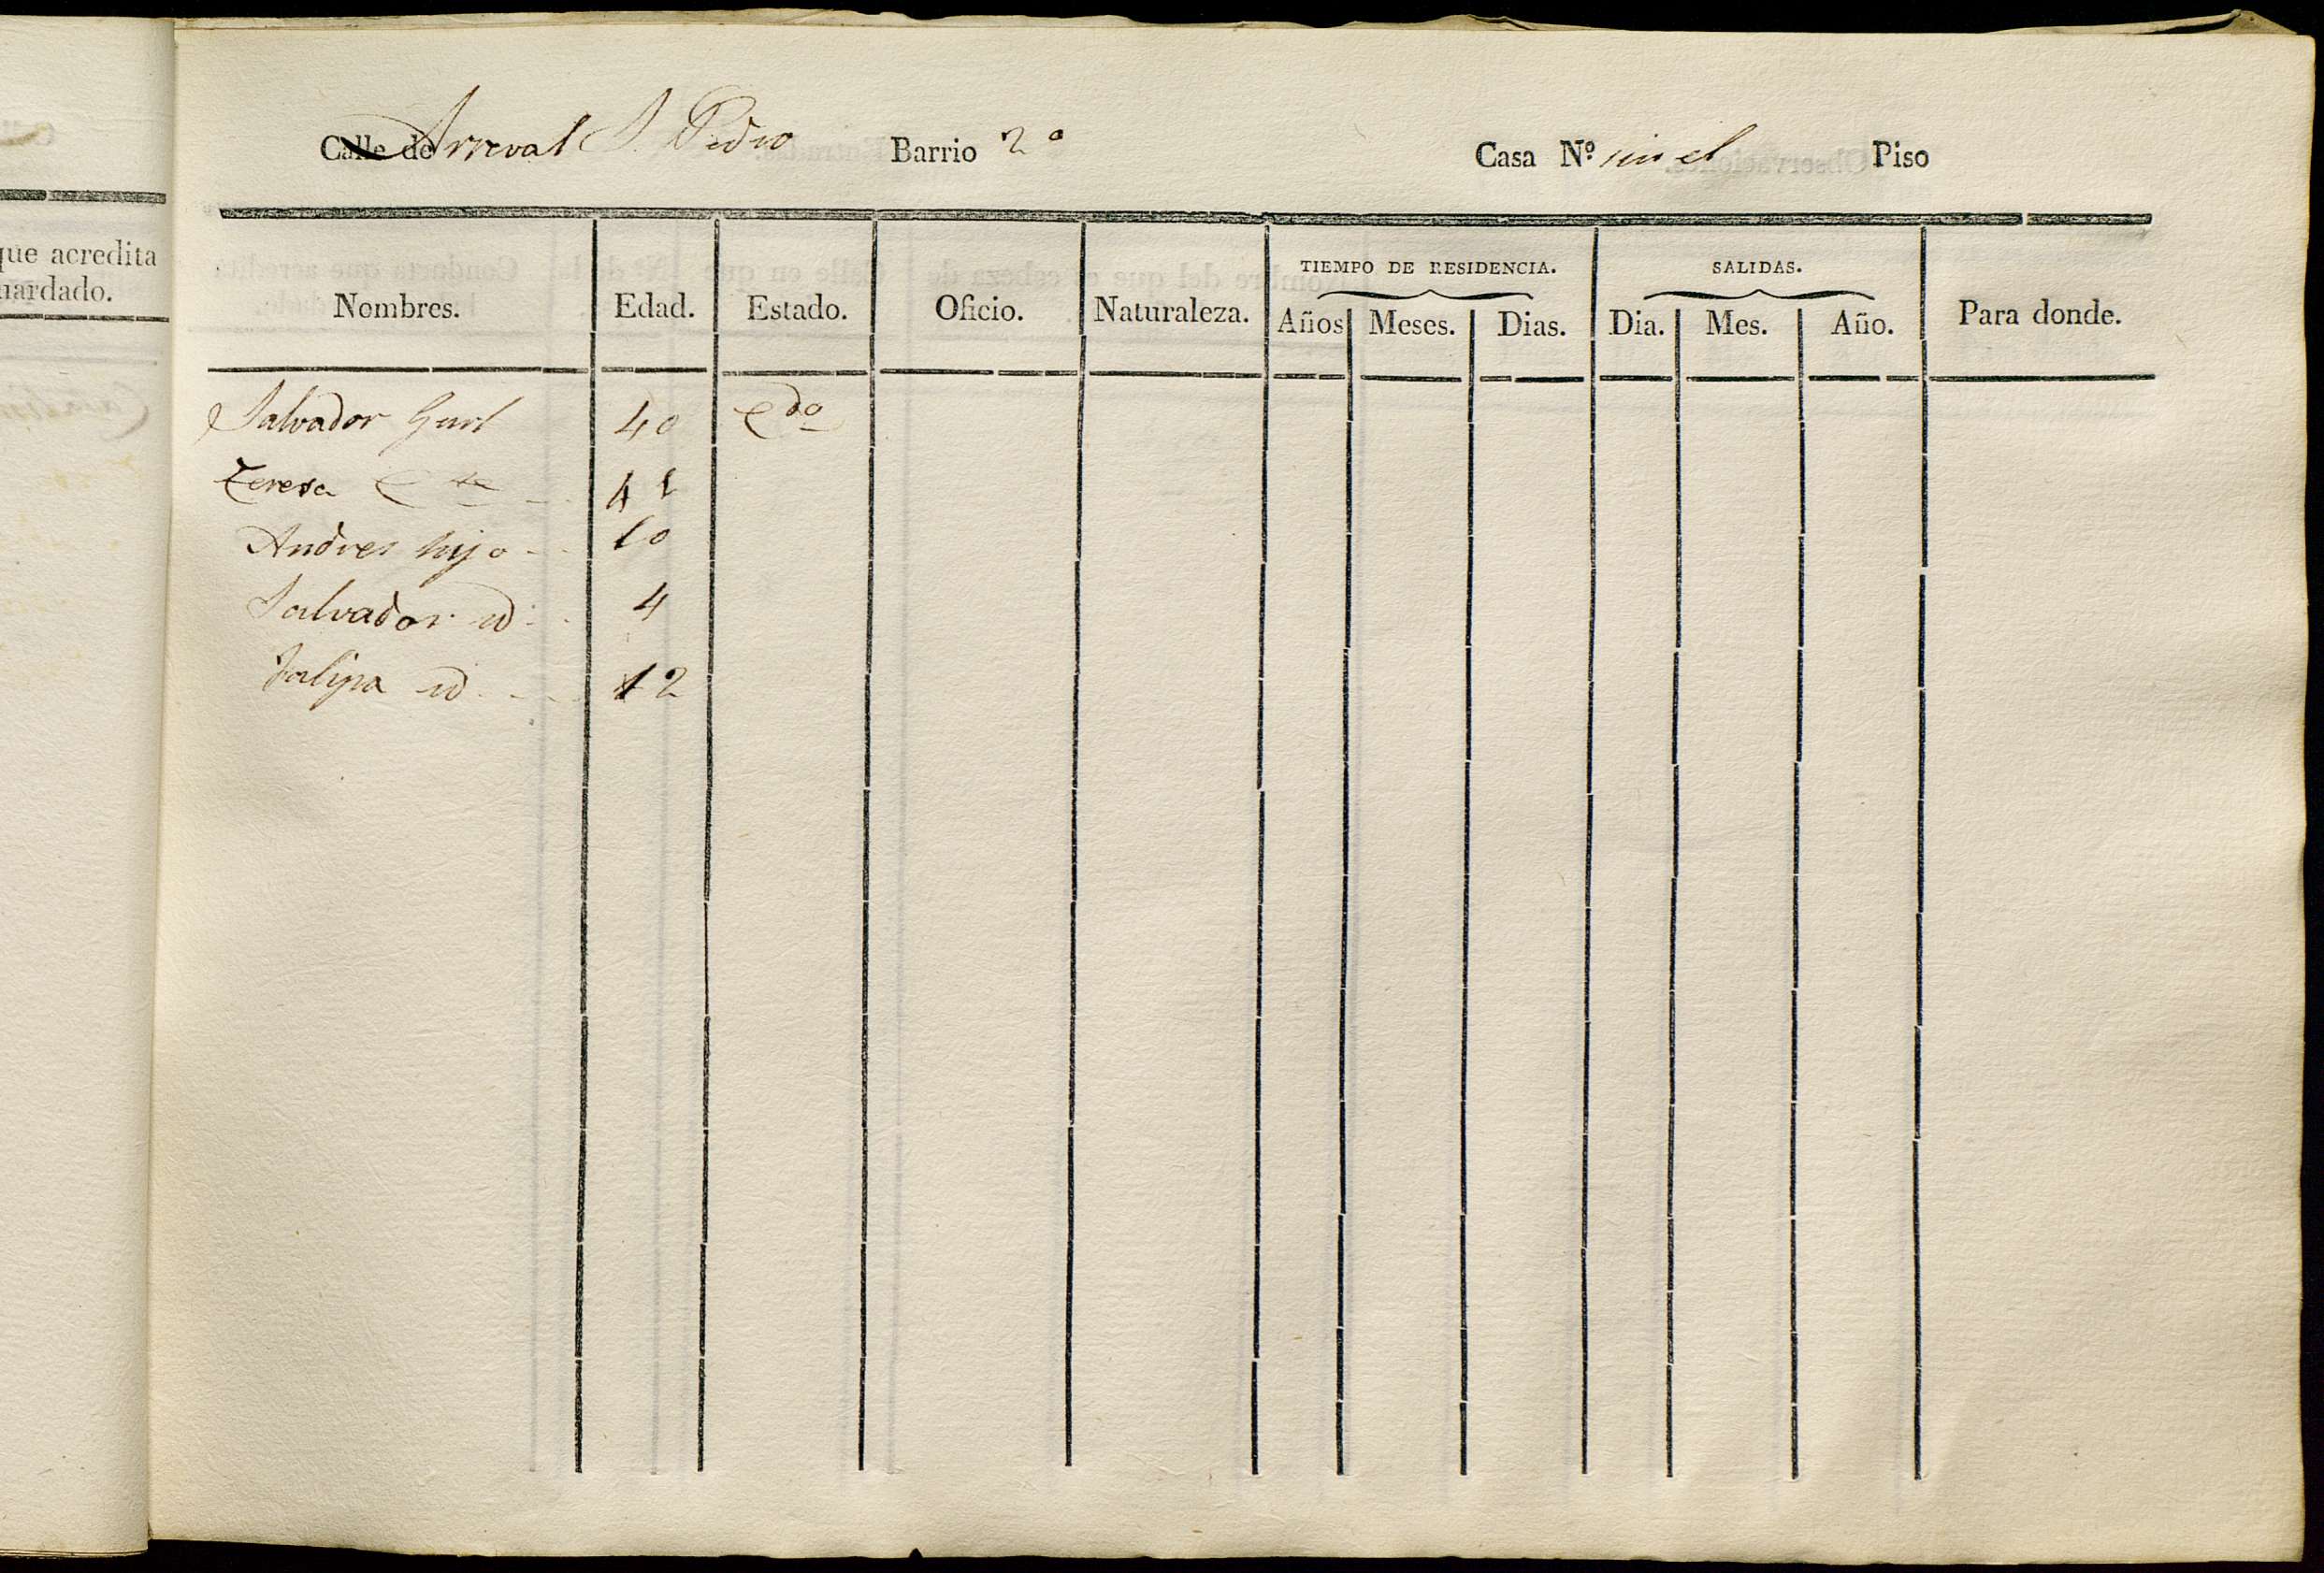 que acredita
uardado.
Calle de Arreval S. Pedro Barrio 2º Casa Nº sin el Piso
TIEMPO DE RESIDENCIA. SALIDAS.
Nombres. Edad. Estado. Oficio. Naturaleza. Años Meses. Dias. Dia. Mes. Año. Para donde.
Salvador 40 Cdo
Teresa 41
Andres hijo 10
Salvador id 4
Falipa id 12